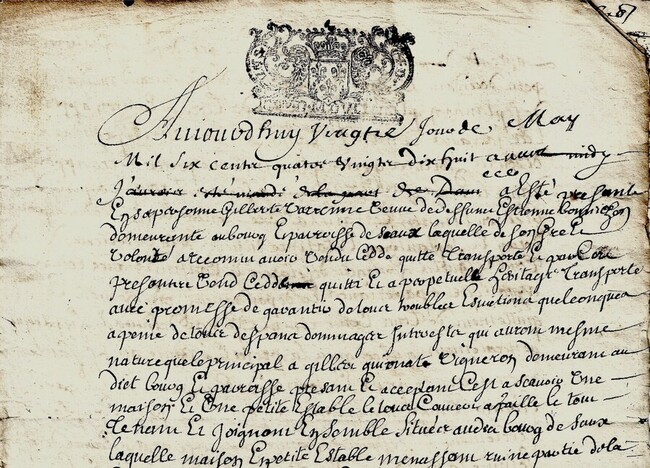 Aujourdhuy Vingtie Jour de May
Mil six centz quatre Vingtz dix huit avant midy
a Esté presente
En sa personne Gilberte Varenne Veuve de deffunt Estienne
demeurante au bourg Et parroisse de Saux laquelle de son gre Et
volonté a reconnu avoir Vendu Cedde quitté Transporté Et par Ces
presentes Vend Cedde quitte Et a perpetuelle heritage Transporte
avec promesse de garantir de tous troubles Esvictions quelconques
a peine de tous despans dommages Interests qui auront mesme
nature que le principal a gilbert Vigneron demeurant au
diet bourg Et parroisse presant Et acceptant Cest a scavoir Une
maison Et Une petite Estable le tout Couvert a paille le tout
Et Joignant Ensemble Situés audit bourg de Saux
laquelle maison Et petite Estable menassant ruine partie de la